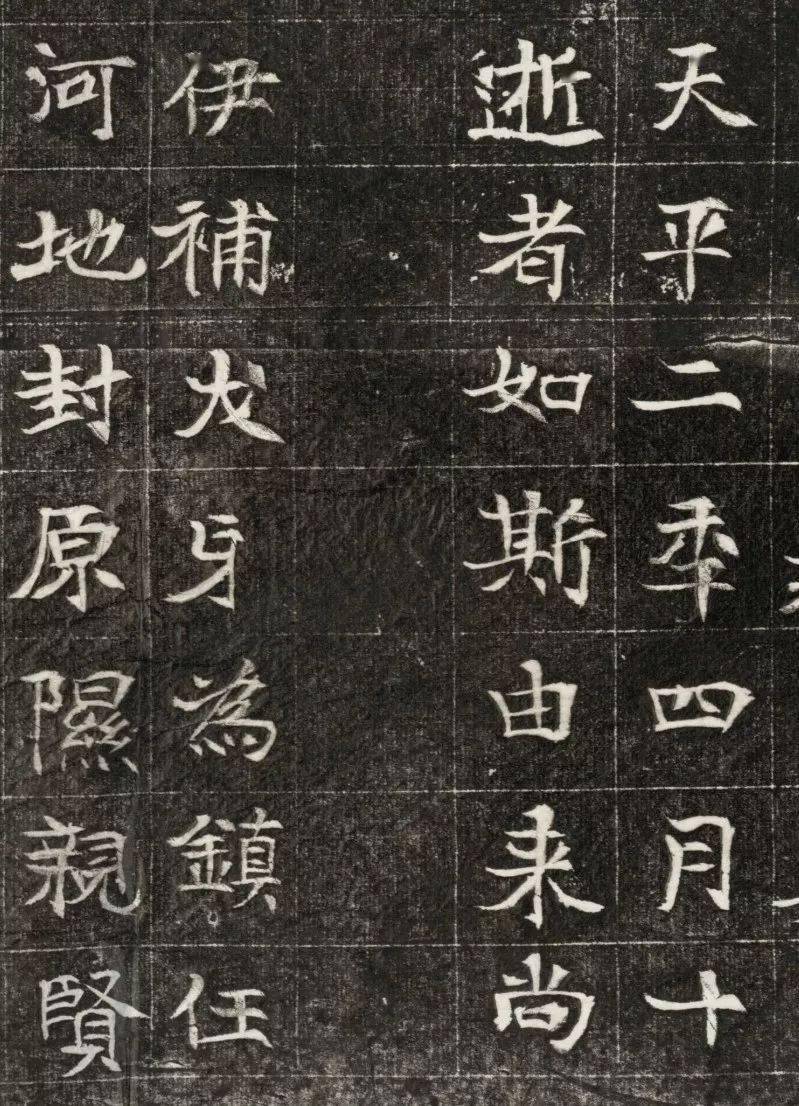 天平二年四月十
逝者如斯由来尚
伊補犬牙為鎮任
河地封原隰親賢